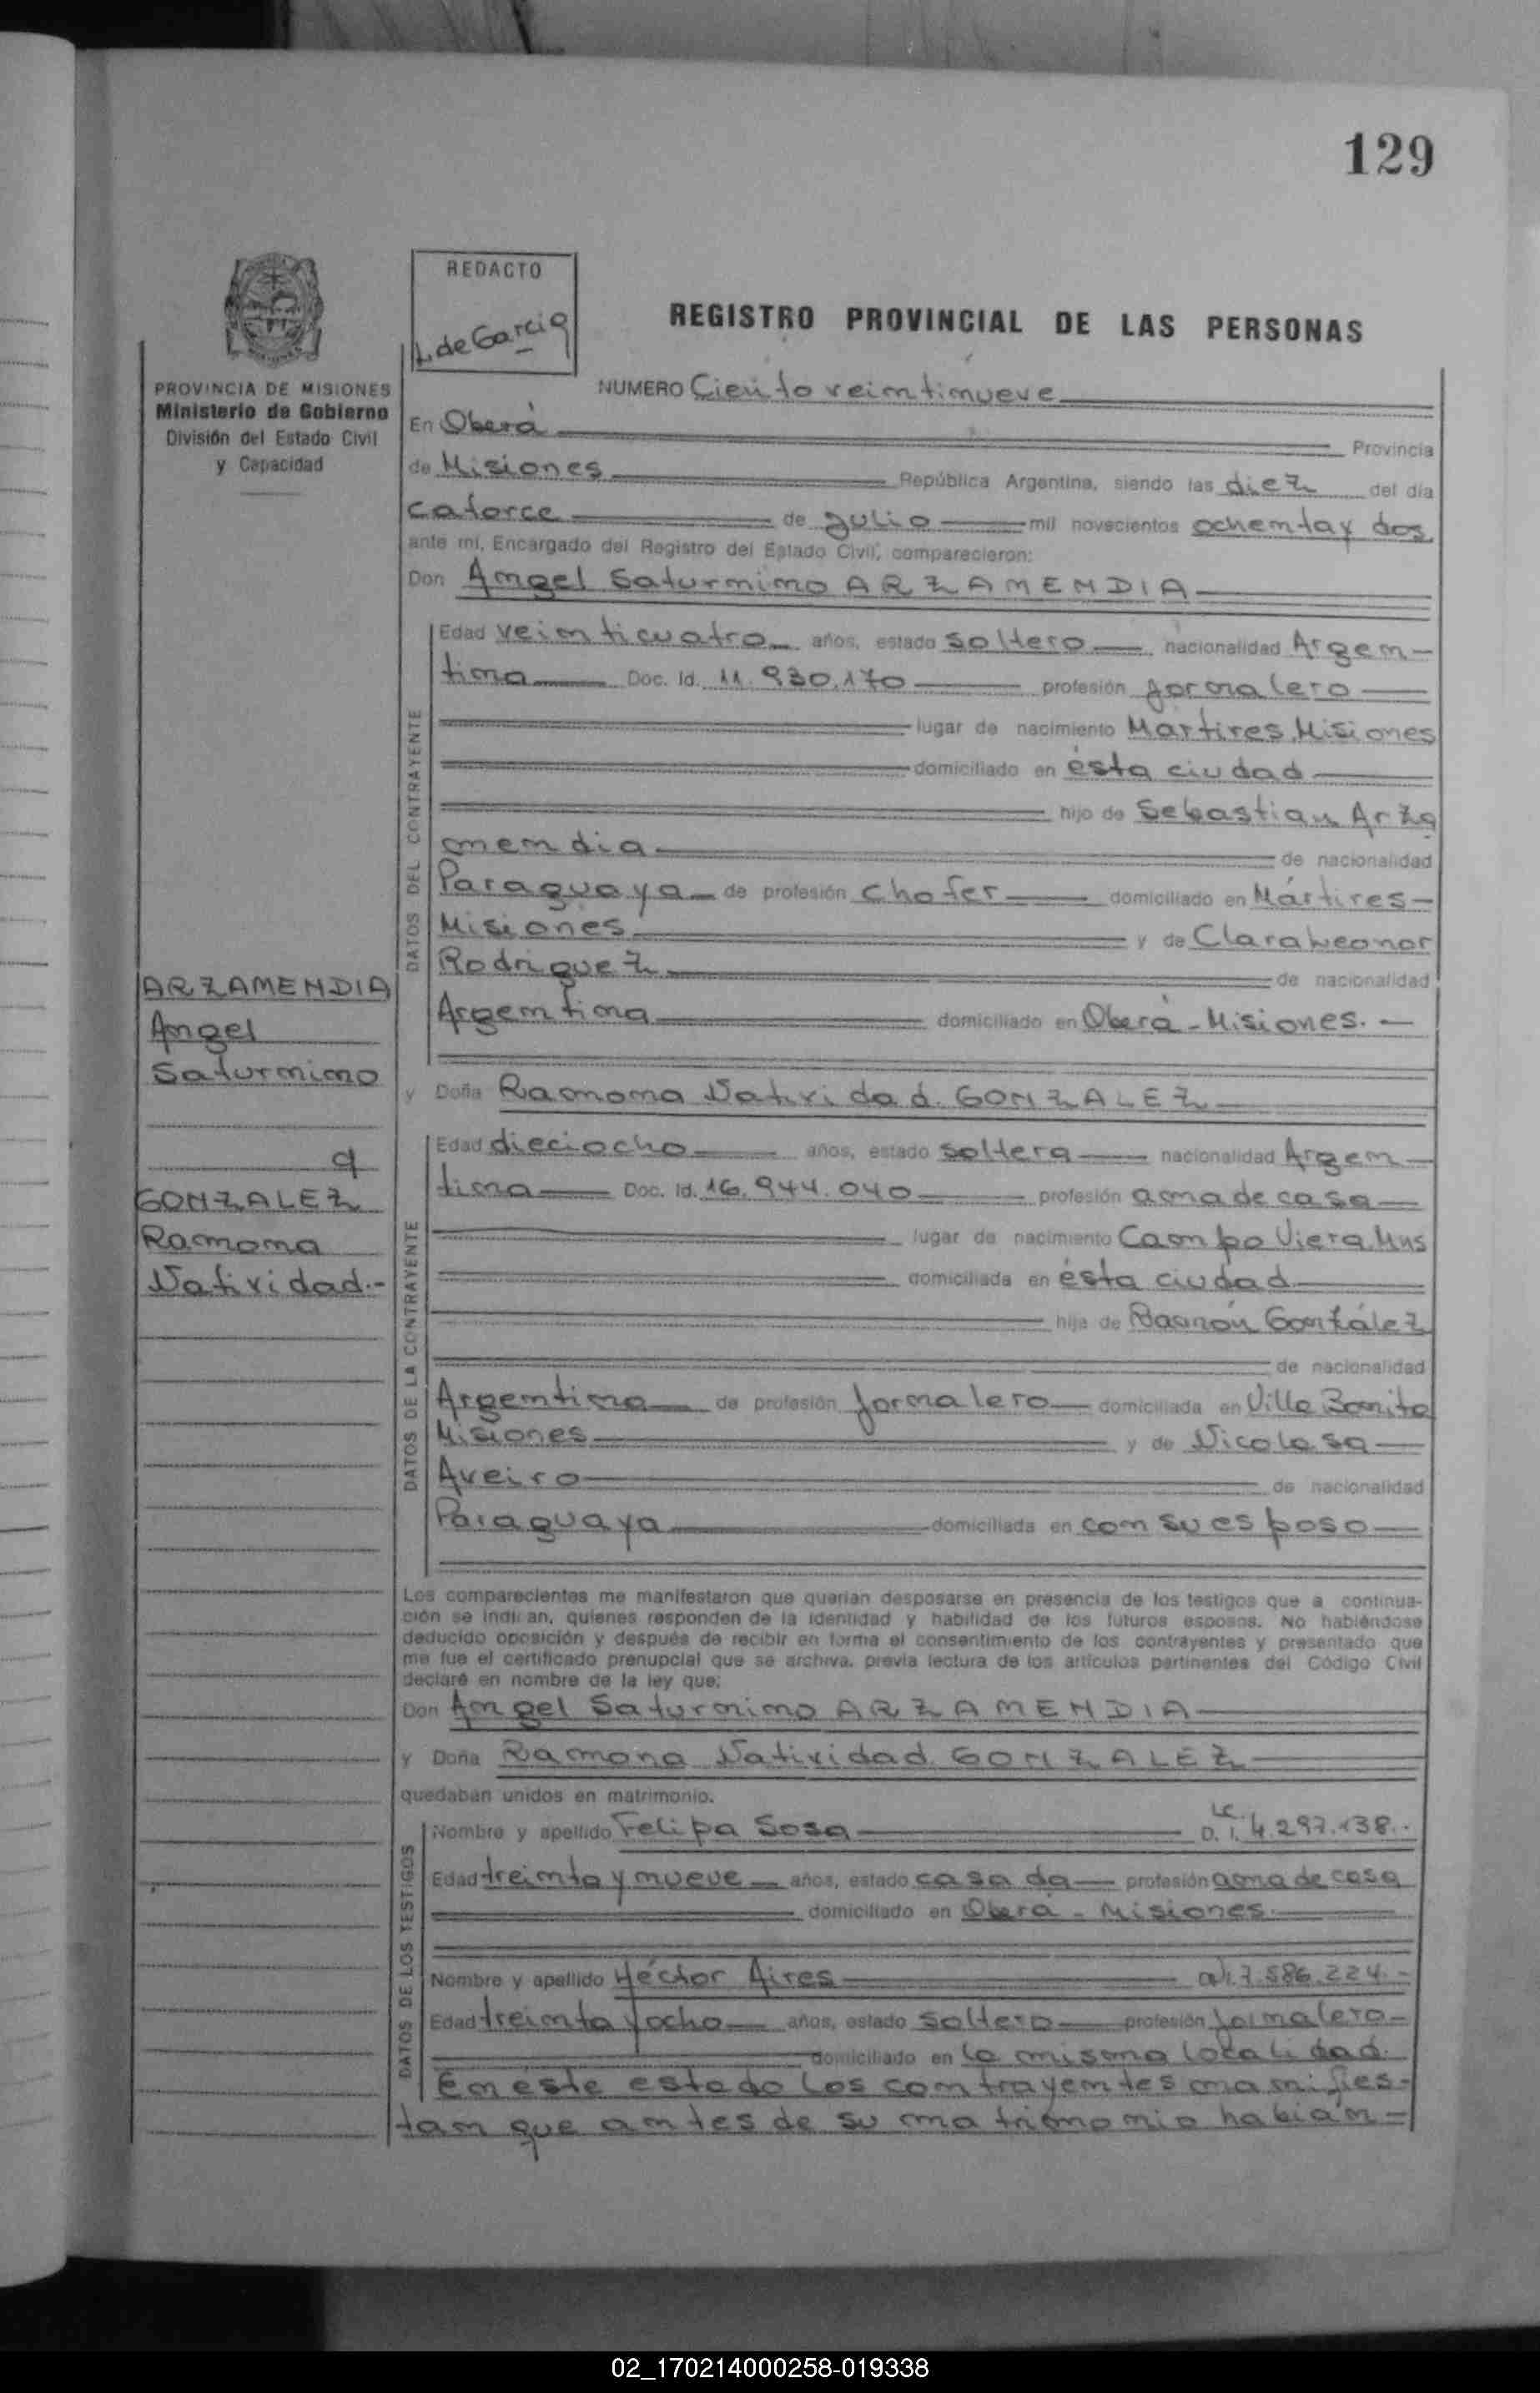 129
REDACTO
L. de Garcia
REGISTRO PROVINCIAL DE LAS PERSONAS
PROVINCIA DE MISIONES
Ministerio de Gobierno
División del Estado Civil
y Capacidad
NUMERO Ciento veintinueve
En Oberá Provincia
de Misiones República Argentina, siendo las diez del día
catorce de Julio mil novecientos ochenta y dos
ante mí, Encargado del Registro del Estado Civil, comparecieron:
Don Angel Saturnino ARZAMENDIA
DATOS DEL CONTRAYENTE
Edad veinticuatro años, estado soltero nacionalidad Argen-
tina Doc. Id. 11.930.170 profesión jornalero
lugar de nacimiento Mártires Misiones
domiciliado en ésta ciudad
hijo de Sebastian Arza
mendia de nacionalidad
Paraguaya de profesión chofer domiciliado en Mártires-
Misiones y de Clara Leonor
Rodriguez de nacionalidad
Argentina domiciliado en Oberá - Misiones.-
ARZAMENDIA
Angel
Saturnino
q
GONZALEZ
Ramona
Natividad.-
y Doña Ramona Natividad GONZALEZ
DATOS DE LA CONTRAYENTE
Edad dieciocho años, estado soltera nacionalidad Argen-
tina Doc. Id. 16.944.040 profesión ama de casa
lugar de nacimiento Campo Viera Mns
domiciliada en ésta ciudad
hija de Ramón González
de nacionalidad
Argentina de profesión jornalero domiciliada en Villa Bonita
Misiones y de Nicolasa
Aveiro de nacionalidad
Paraguaya domiciliada en con su esposo
Los comparecientes me manifestaron que querían desposarse en presencia de los testigos que a continua-
ción se indi an, quienes responden de la identidad y habilidad de los futuros esposos. No habiéndose
deducido oposición y después de recibir en forma el consentimiento de los contrayentes y presentado que
me fue el certificado prenupcial que se archiva, previa lectura de los artículos pertinentes del Código Civil
declaré en nombre de la ley que:
Don Angel Saturnino ARZAMENDIA
y Doña Ramona Natividad GONZALEZ
quedaban unidos en matrimonio.
DATOS DE LOS TESTIGOS
Nombre y apellido Felipa Sosa L.C. D. I. 4.297.138.-
Edad treinta y nueve años, estado casada profesión ama de casa
domiciliado en Oberá - Misiones.
Nombre y apellido Héctor Aires D.I. 7.586.224.-
Edad treinta y ocho años, estado soltero profesión jornalero-
domiciliado en la misma localidad.
En este estado los contrayentes manifies-
tan que antes de su matrimonio habían-
02_170214000258-019338